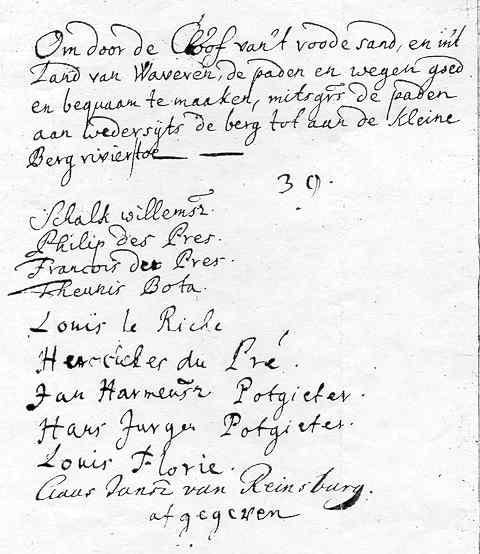 Om door de Cloof van't roode sand, en int
Land van Waveren, de paden en wegen goed
en bequaam te maaken, mitsgrs de paden
aan wedersyts de berg tot aan de Kleine
Berg rivier toe
39.
Schalk willemsz.
Philip des Pres.
Francois des Pres.
Theunis Bota.
Louis le Riche
Hercules du Pré.
Jan Harmensz Potgieter.
Hans Jurgen Potgieter.
Louis Florie.
Claas Jansz van Reinsburg.
afgegeven